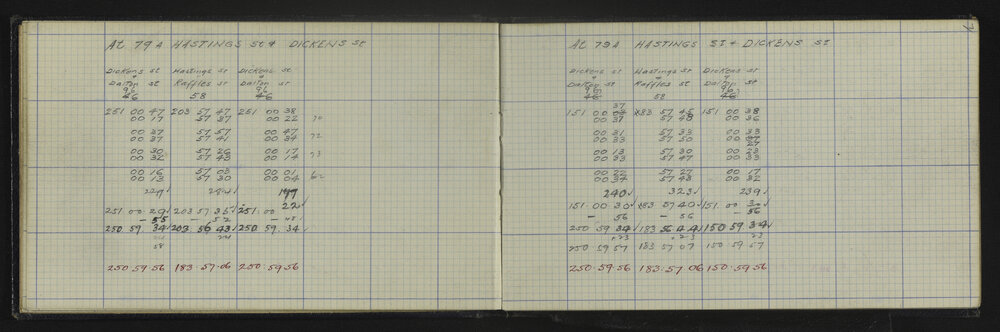 At 79A HASTINGS St & DICKENS St
Dickens st Hastings st Dickens st
& & &
Dalton st Raffles st Dalton st
96 96
46 58 46
251 00 47 203 57 47 251 00 38
00 17 57 37 00 22 70
00 37 57 57 00 47
00 37 57 41 00 34 72
00 30 57 26 00 17
00 32 57 43 00 14 73
00 16 57 03 00 01
00 13 57 30 00 04 62
229
251 00 29 203 57 35 251 00 22
- 55 - 52 - 48
250 59 34 203 56 43 250 59 34
58
250 59 56 183 57 06 250 59 56
7
At 79A HASTINGS ST & DICKENS St
Dickens st Hastings st Dickens st
& & &
Dalton st Raffles st Dalton st
96 96
46 58 46
37
151 00 183 57 45 151 00 38
00 31 57 48 00 36
00 31 57 33 00 33
00 33 57 50 00
27
00 13 57 30 00 23
00 33 57 47 00 33
00 22 57 27 00 17
00 34 57 43 00 32
240 323 239
151 00 30 183 57 40 151 00 30
- 56 - 56 - 56
250 59 34 183 56 44 150 59 34
+23 +23 23
250 59 57 183 57 07 150 59 57
250 59 56 183 57 06 150 59 56